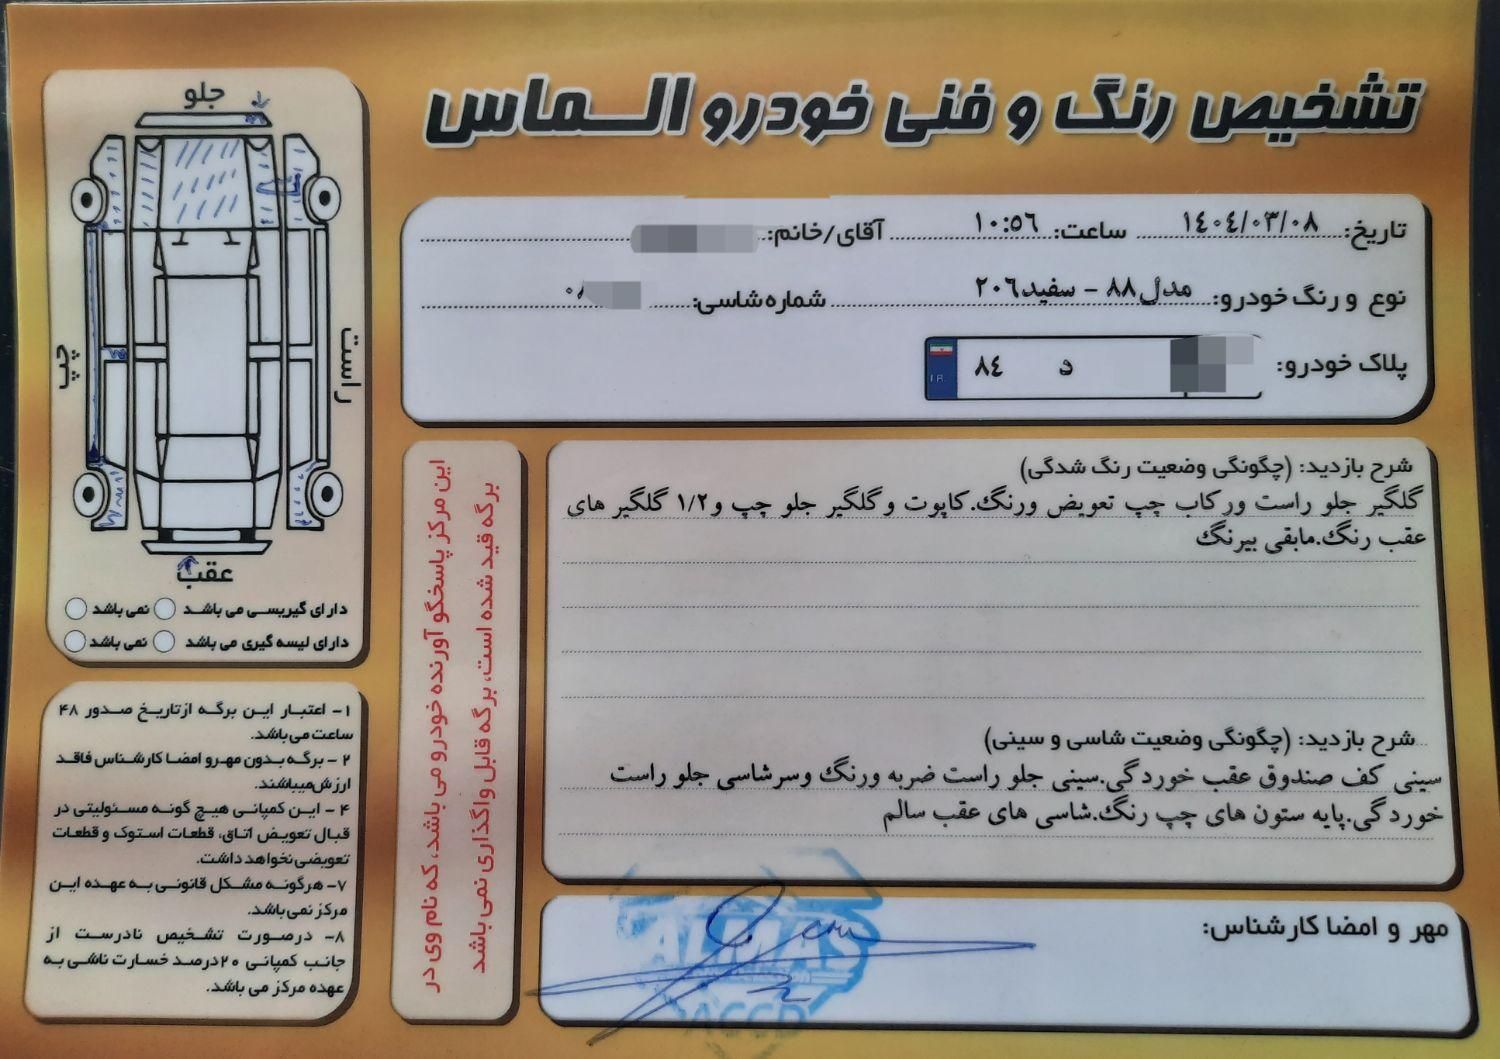 تشخیص رنگ و فنی خودرو الماس
تاریخ: ۱٤۰٤/۰۳/۰۸ ساعت: ۱۰:٥٦ آقای/خانم:
نوع و رنگ خودرو: مدل ۸۸ - سفید ۲۰٦ شماره شاسی: ۰۸
پلاک خودرو: د ۸٤
I.R.
جلو
چپ
راست
عقب
دارای گیربسی می باشد نمی باشد
دارای لیسه گیری می باشد نمی باشد
شرح بازدید: (چگونگی وضعیت رنگ شدگی)
گلگیر جلو راست ورکاب چپ تعویض ورنگ.کاپوت وگلگیر جلو چپ و۱/۲ گلگیر های
عقب رنگ.مابقی بیرنگ
شرح بازدید: (چگونگی وضعیت شاسی و سینی)
سینی کف صندوق عقب خوردگی.سینی جلو راست ضربه ورنگ وسرشاسی جلو راست
خوردگی.پایه ستون های چپ رنگ.شاسی های عقب سالم
این مرکز پاسخگو آورنده خودرو می باشد، که نام وی در
برگه قید شده است، برگه قابل واگذاری نمی باشد
۱- اعتبار این برگه ازتاریخ صدور ۴۸
ساعت می باشد.
۲ - برگه بدون مهرو امضا کارشناس فاقد
ارزش میباشند.
۴ - این کمپانی هیچ گونه مسئولیتی در
قبال تعویض اتاق، قطعات استوک و قطعات
تعویضی نخواهد داشت.
۷- هرگونه مشکل قانونی به عهده این
مرکز نمی باشد.
۸- درصورت تشخیص نادرست از
جانب کمپانی ۲۰درصد خسارت ناشی به
عهده مرکز می باشد.
مهر و امضا کارشناس:
ALMAS
ACCD